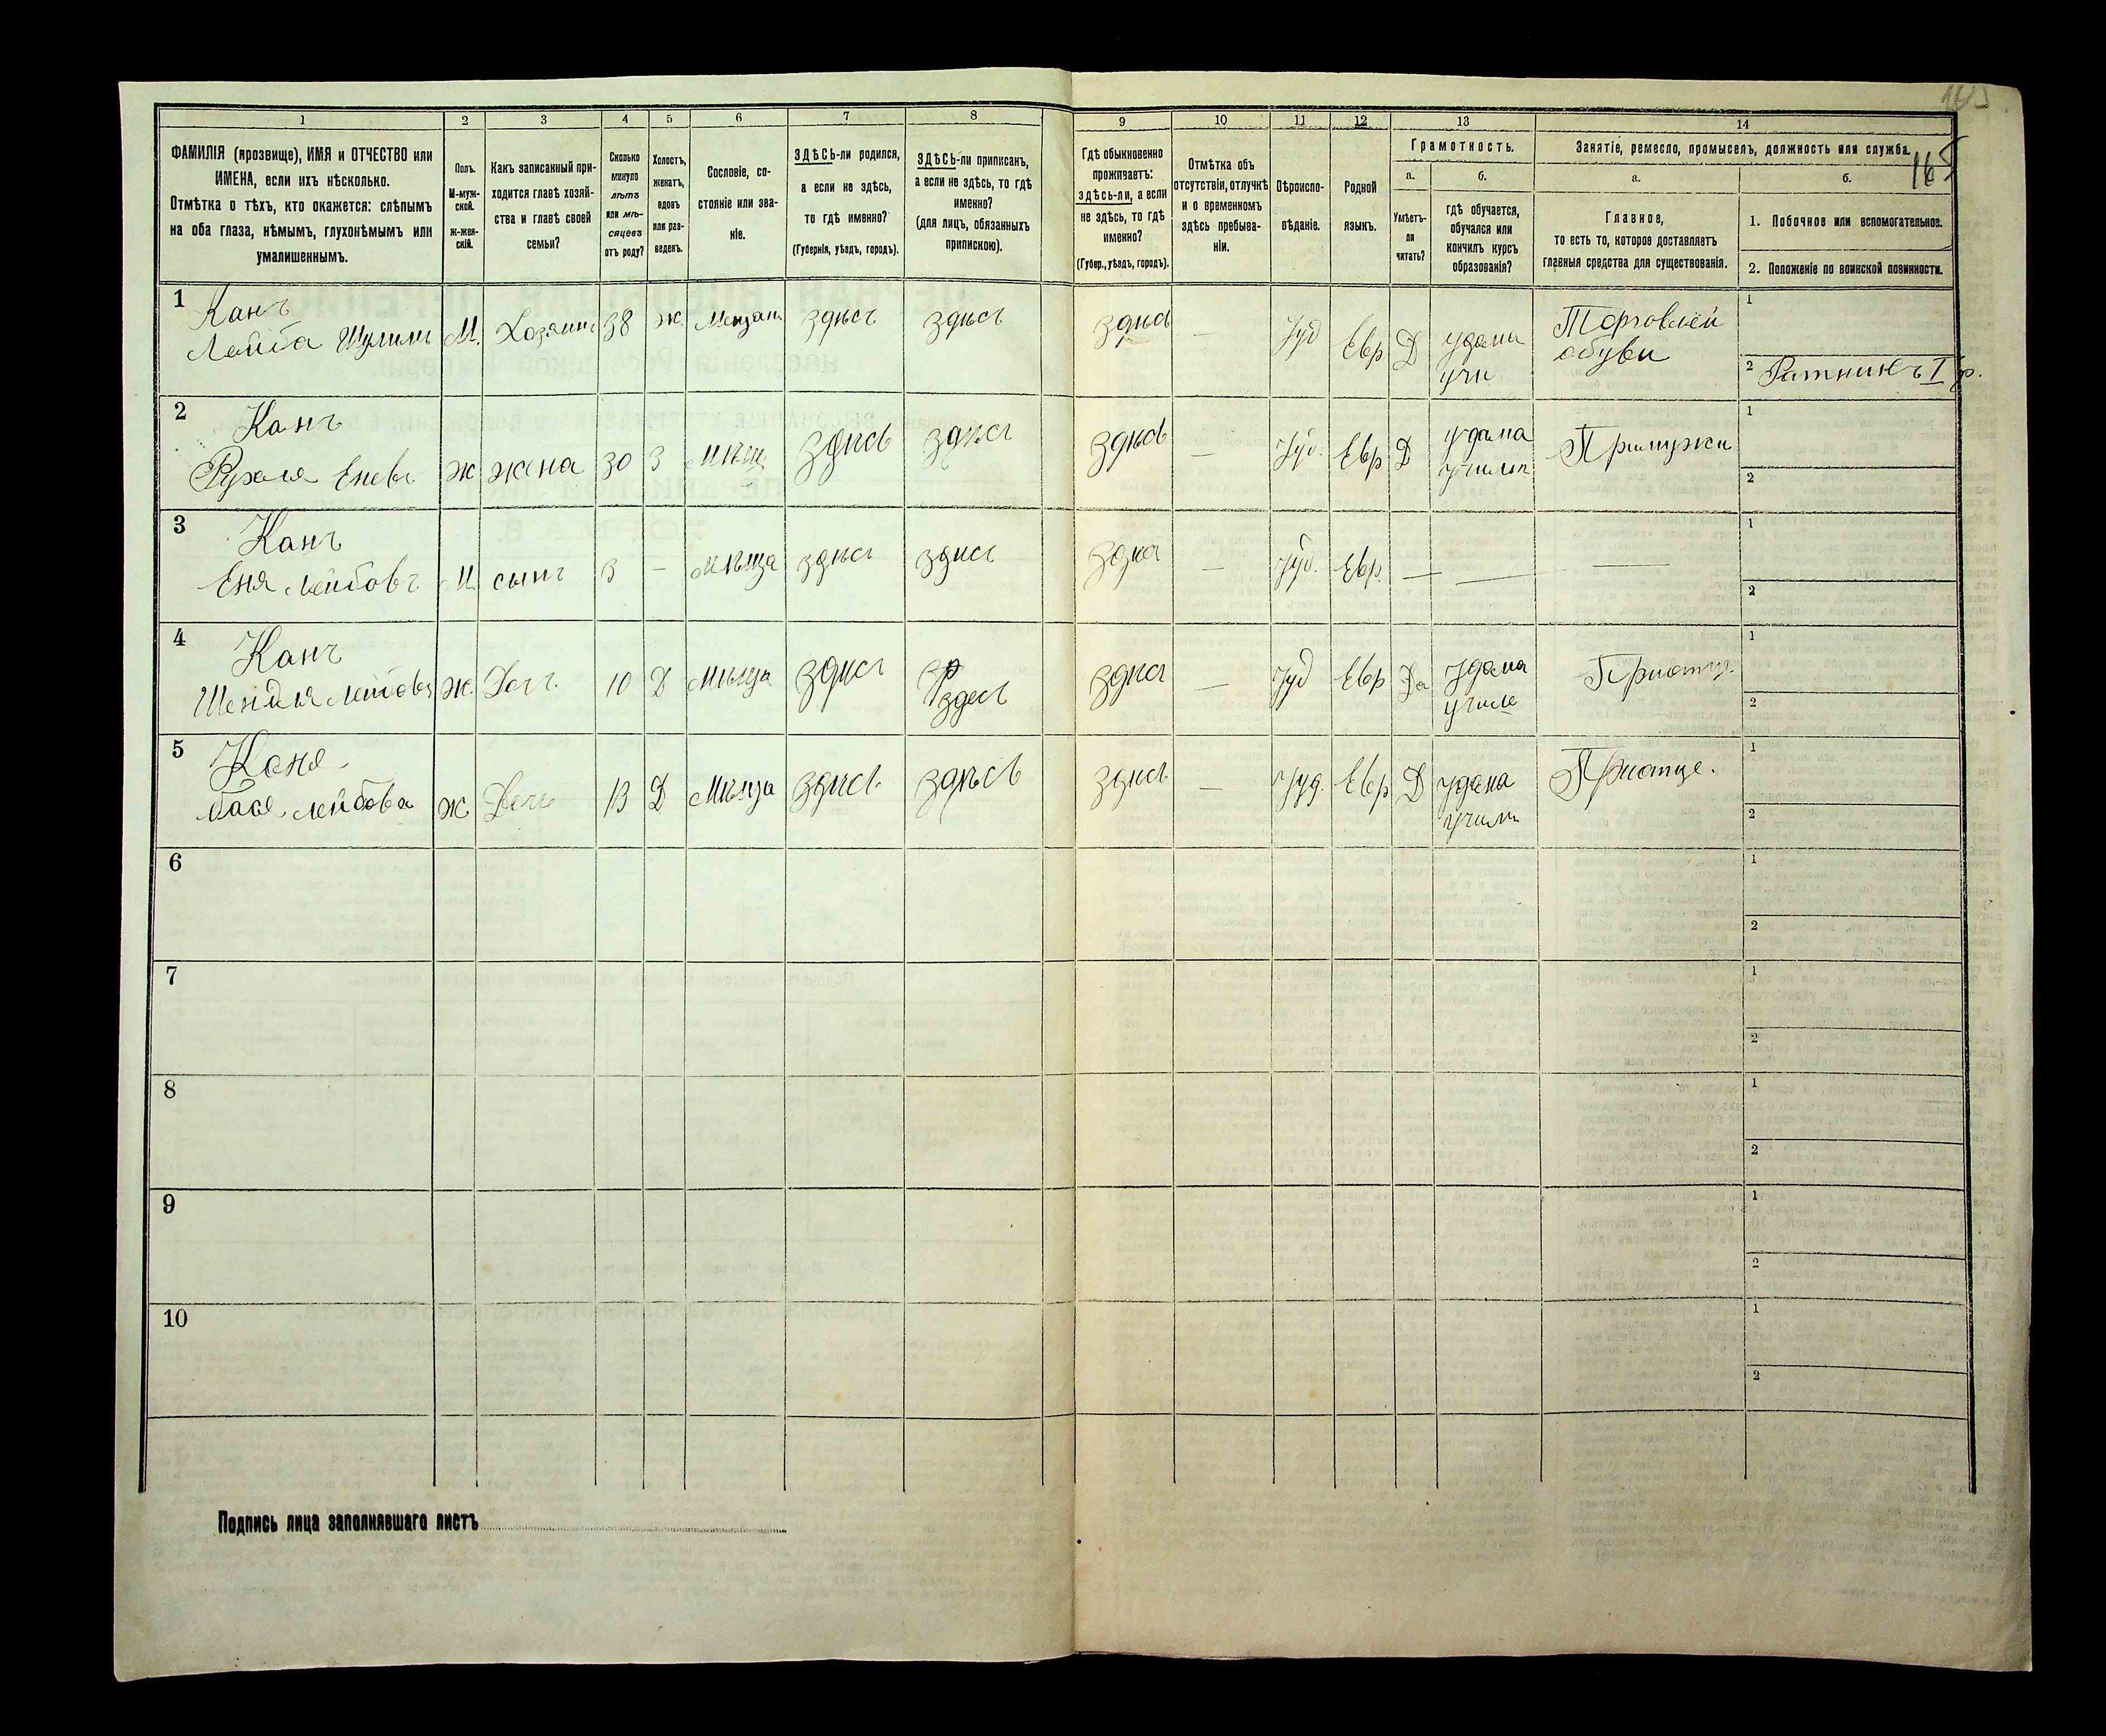 165
1 2 3 4 5 6 7 8 9 10 11 12 13 14
ФАМИЛІЯ (прозвище), ИМЯ и ОТЧЕСТВО или
ИМЕНА, если ихъ нѣсколько.
Отмѣтка о тѣхъ, кто окажется: слѣпымъ
на оба глаза, нѣмымъ, глухонѣмымъ или
умалишеннымъ.
Полъ.
М-муж-
ской.
ж-жен-
скій.
Какъ записанный при-
ходится главѣ хозяй-
ства и главѣ своей
семьи?
Сколько
минуло
лѣтъ
или мѣ-
сяцевъ
отъ роду?
Холостъ,
женатъ,
вдовъ
или раз-
веденъ.
Сословіе, со-
стояніе или зва-
ніе.
ЗДѢСЬ-ли родился,
а если не здѣсь,
то гдѣ именно?
(Губернія, уѣздъ, городъ).
ЗДѢСЬ-ли приписанъ,
а если не здѣсь, то гдѣ
именно?
(для лицъ, обязанныхъ
припискою).
Гдѣ обыкновенно
проживаетъ:
здѣсь-ли, а если
не здѣсь, то гдѣ
именно?
(Губер., уѣздъ, городъ).
Отмѣтка объ
отсутствіи, отлучкѣ
и о временномъ
здѣсь пребыва-
ніи.
Вѣроиспо-
вѣданіе.
Родной
языкъ.
Грамотность.
а.
Умѣетъ-
ли
читать?
б.
гдѣ обучается,
обучался или
кончилъ курсъ
образованія?
Занятіе, ремесло, промыселъ, должность или служба.
а.
Главное,
то есть то, которое доставляетъ
главныя средства для существованія.
б.
1. Побочное или вспомогательное.
2. Положеніе по воинской повинности.
1 Канъ
Лейба Шулимъ М. Хозяинъ 38 ж. Мещан здѣсь здѣсь здѣсь — Іуд Евр Д удама учи Торговлей обуви 1
2 Ратникъ I р.
2 Канъ
Рухля Енев. ж жена 30 З Мѣщ здѣсь здѣсь здѣсь — Іуд. Евр Д удама училп При мужи 1
2
3 Канъ
Еня Лейбовъ М сынъ 3 — Мѣща здѣсь здѣсь здѣсь — Іуд. Евр. — — — 1
2
4 Канъ
Шендля Лейбова ж. Доч. 10 Д Мѣща здѣсь здѣсь здѣсь — Іуд Евр Да удама училе При отц. 1
2
5 Кане
Бася Лейбова ж Дочь 13 Д Мѣща здѣсь здѣсь здѣсь — Іуд. Евр Д удама учили При отце. 1
2
6 1
2
7 1
2
8 1
2
9 1
2
10 1
2
Подпись лица заполнявшаго листъ